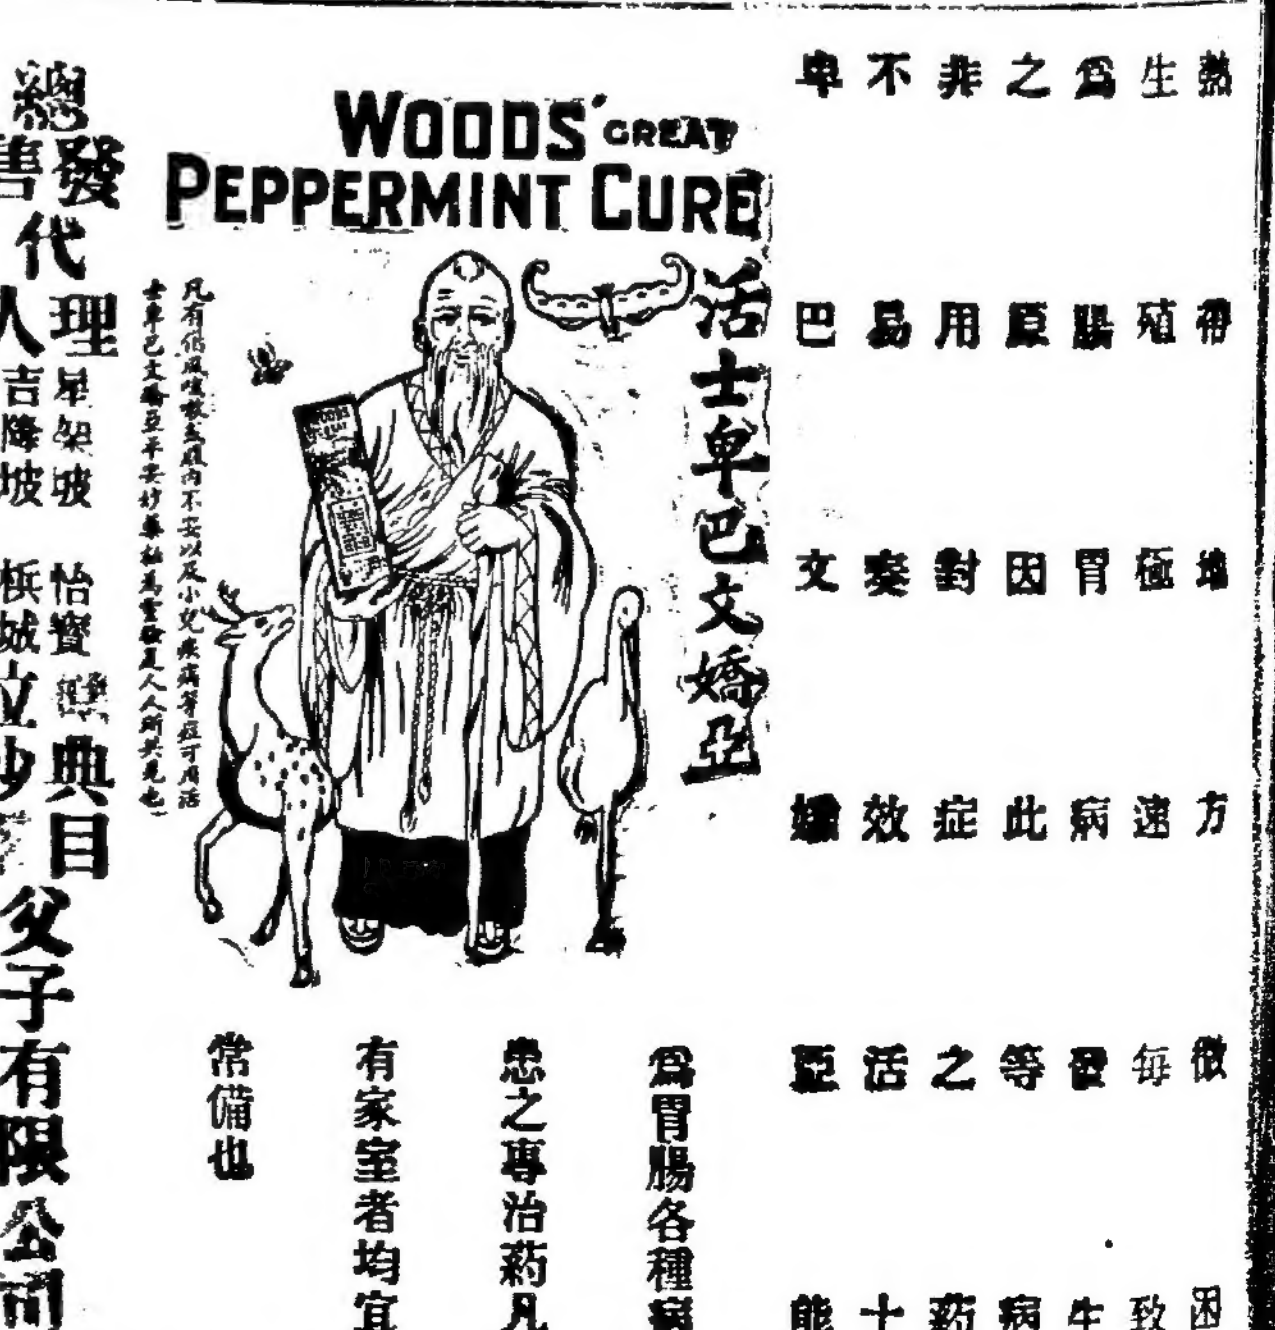 熱帶地方微困
生殖極速每致
爲腸胃病發生
之原因此等病
非用對症之药
不易奏效活士
卑巴文嬌亞能
WOODS' GREAT
PEPPERMINT CURE
活士卑巴文嬌亞
凡有傷風咳嗽
內不安以及小兒疾病等症可用活
士卑巴文嬌亞平安妙藥極爲靈驗是人人所共見也
爲胃腸各種病
患之專治药凡
有家室者均宜
常備也
總發售代理人
星架坡 怡寶
吉隆坡 檳城
典目
父子有限公司